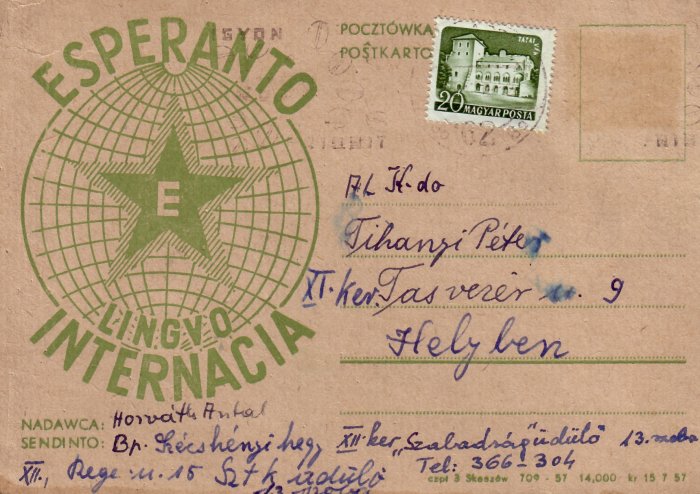 ESPERANTO
E
LINGVO
INTERNACIA
POCZTÓWKA
POŜTKARTO
TATAI VÁR
20 MAGYAR POSTA
Al K-do
Tihanyi Péter
XI. ker Tas vezér u. 9
Helyben
NADAWCA: Horváth Antal
SENDINTO: Bp. Szécshényi hegy XII. ker „Szabadság" üdülő 13. szoba
XII., Rege u. 15 Sztk üdülő Tel: 366-304
czpt 3 Skoszów 709 - 57 14,000 kr 15 7 57